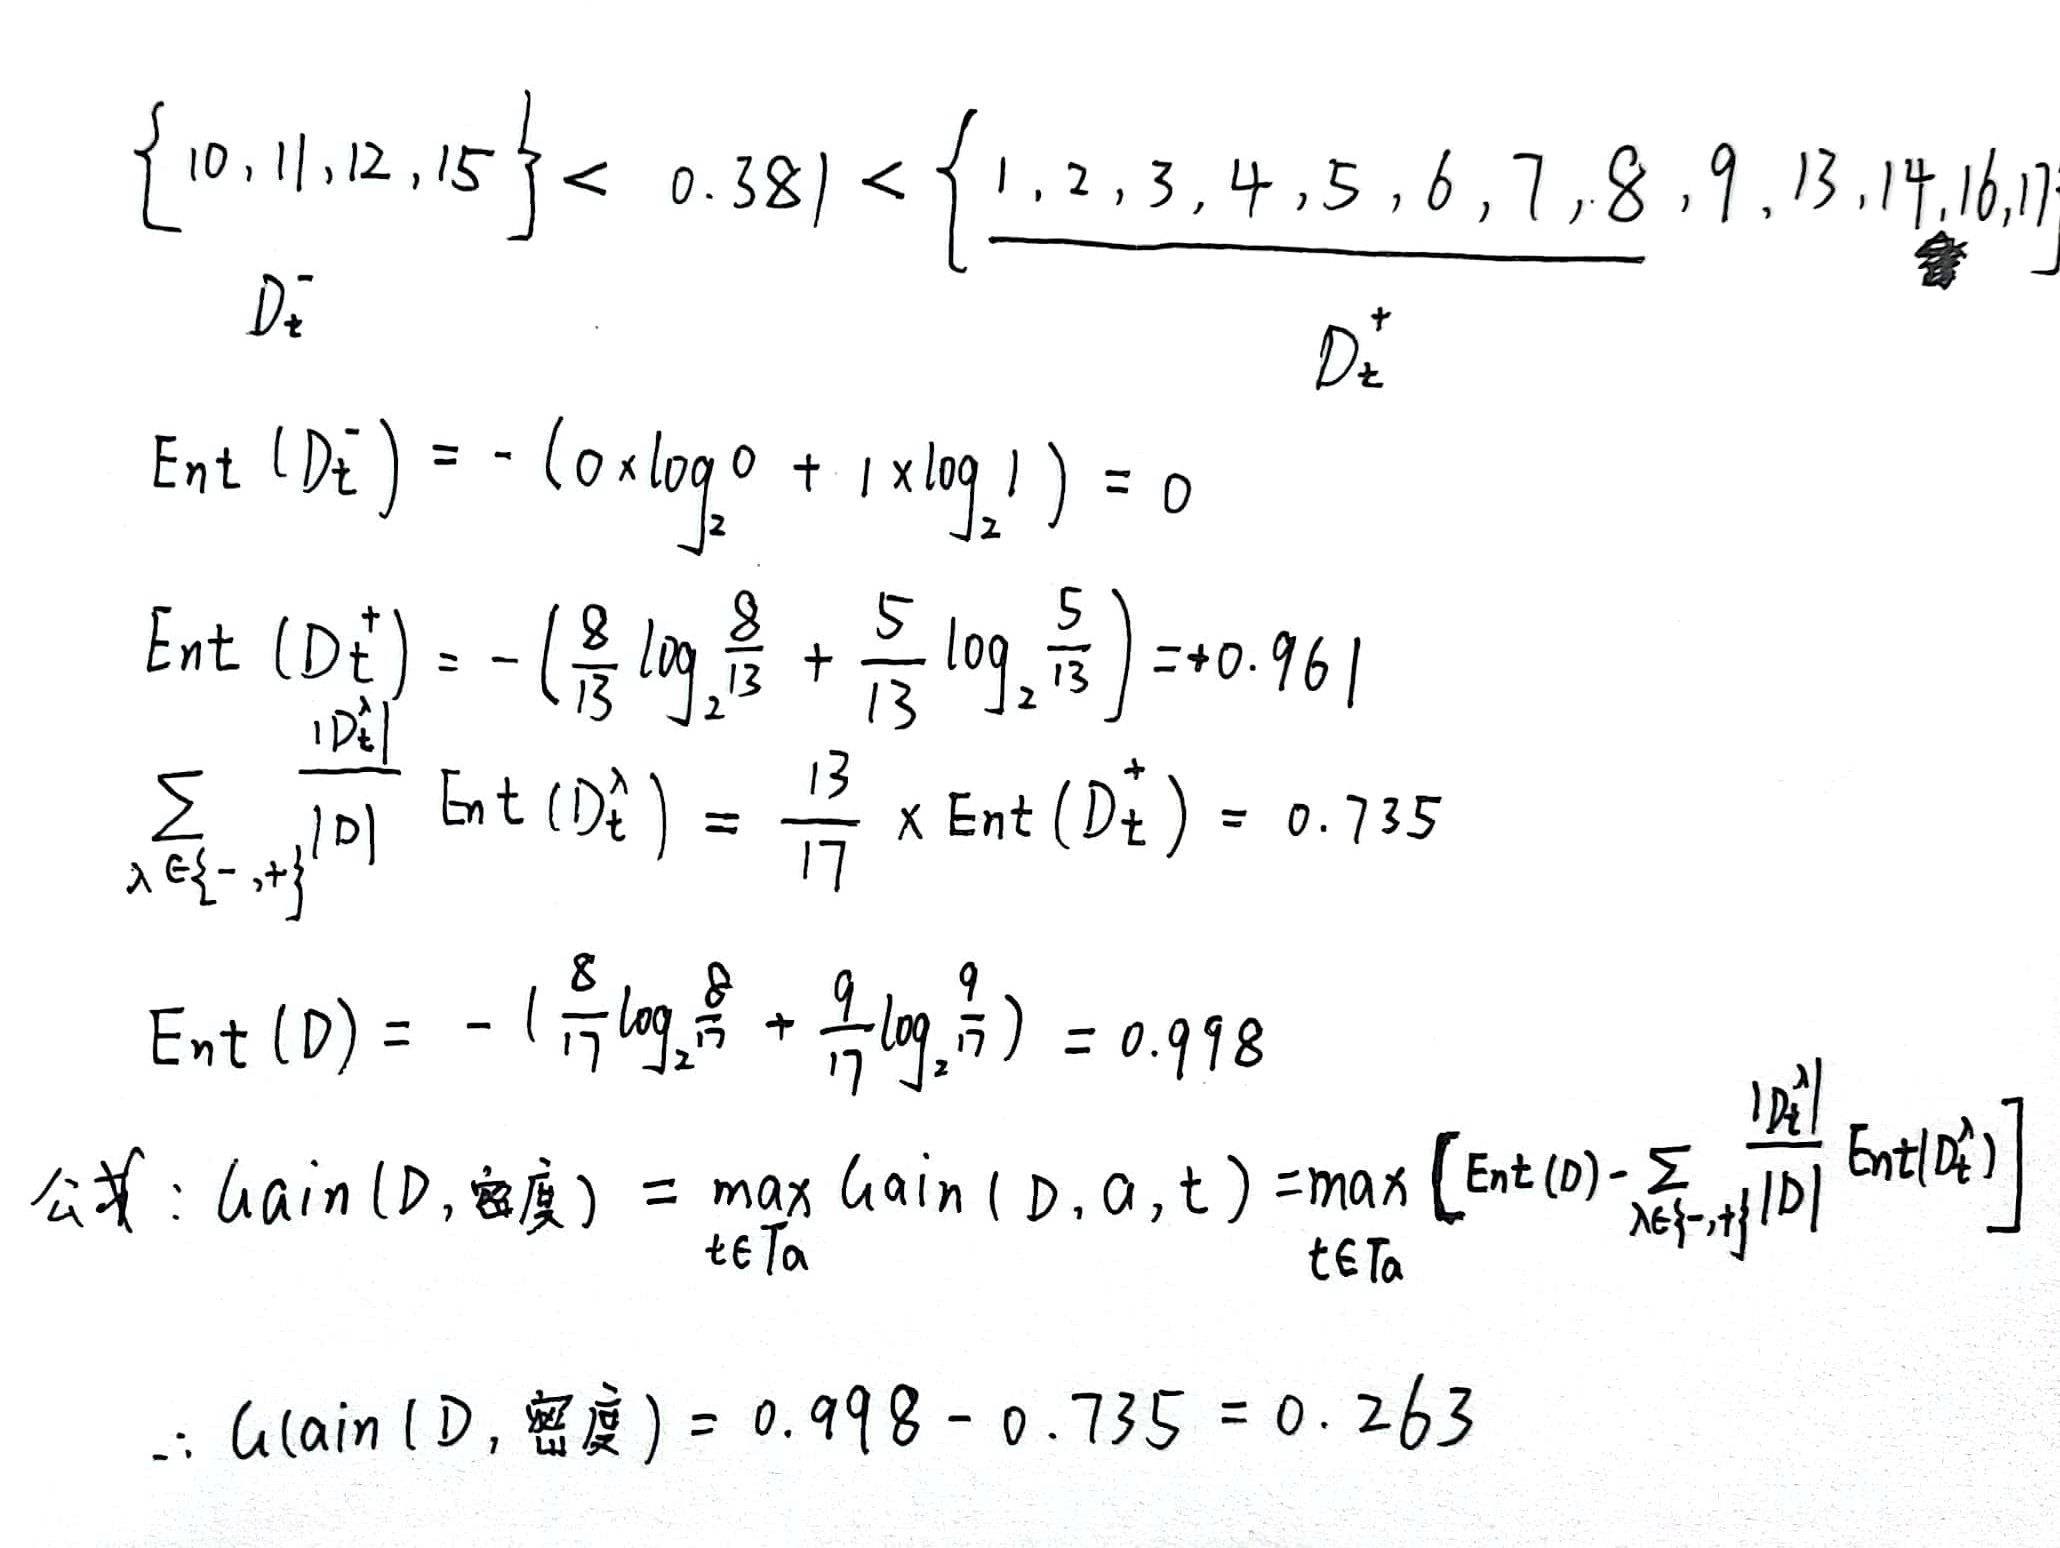 {10,11,12,15} < 0.381 < {1,2,3,4,5,6,7,8,9,13,14,16,17}
Dₜ⁻ Dₜ⁺
Ent(Dₜ⁻) = -(0×log₂0 + 1×log₂1) = 0
Ent(Dₜ⁺) = -(8/13 log₂ 8/13 + 5/13 log₂ 5/13) = +0.961
∑_{λ∈{-,+}} |Dₜ^λ|/|D| Ent(Dₜ^λ) = 13/17 × Ent(Dₜ⁺) = 0.735
Ent(D) = -(8/17 log₂ 8/17 + 9/17 log₂ 9/17) = 0.998
公式: Gain(D,密度) = max_{t∈Ta} Gain(D,a,t) = max_{t∈Ta} [Ent(D) - ∑_{λ∈{-,+}} |Dₜ^λ|/|D| Ent(Dₜ^λ)]
∴ Gain(D,密度) = 0.998 - 0.735 = 0.263